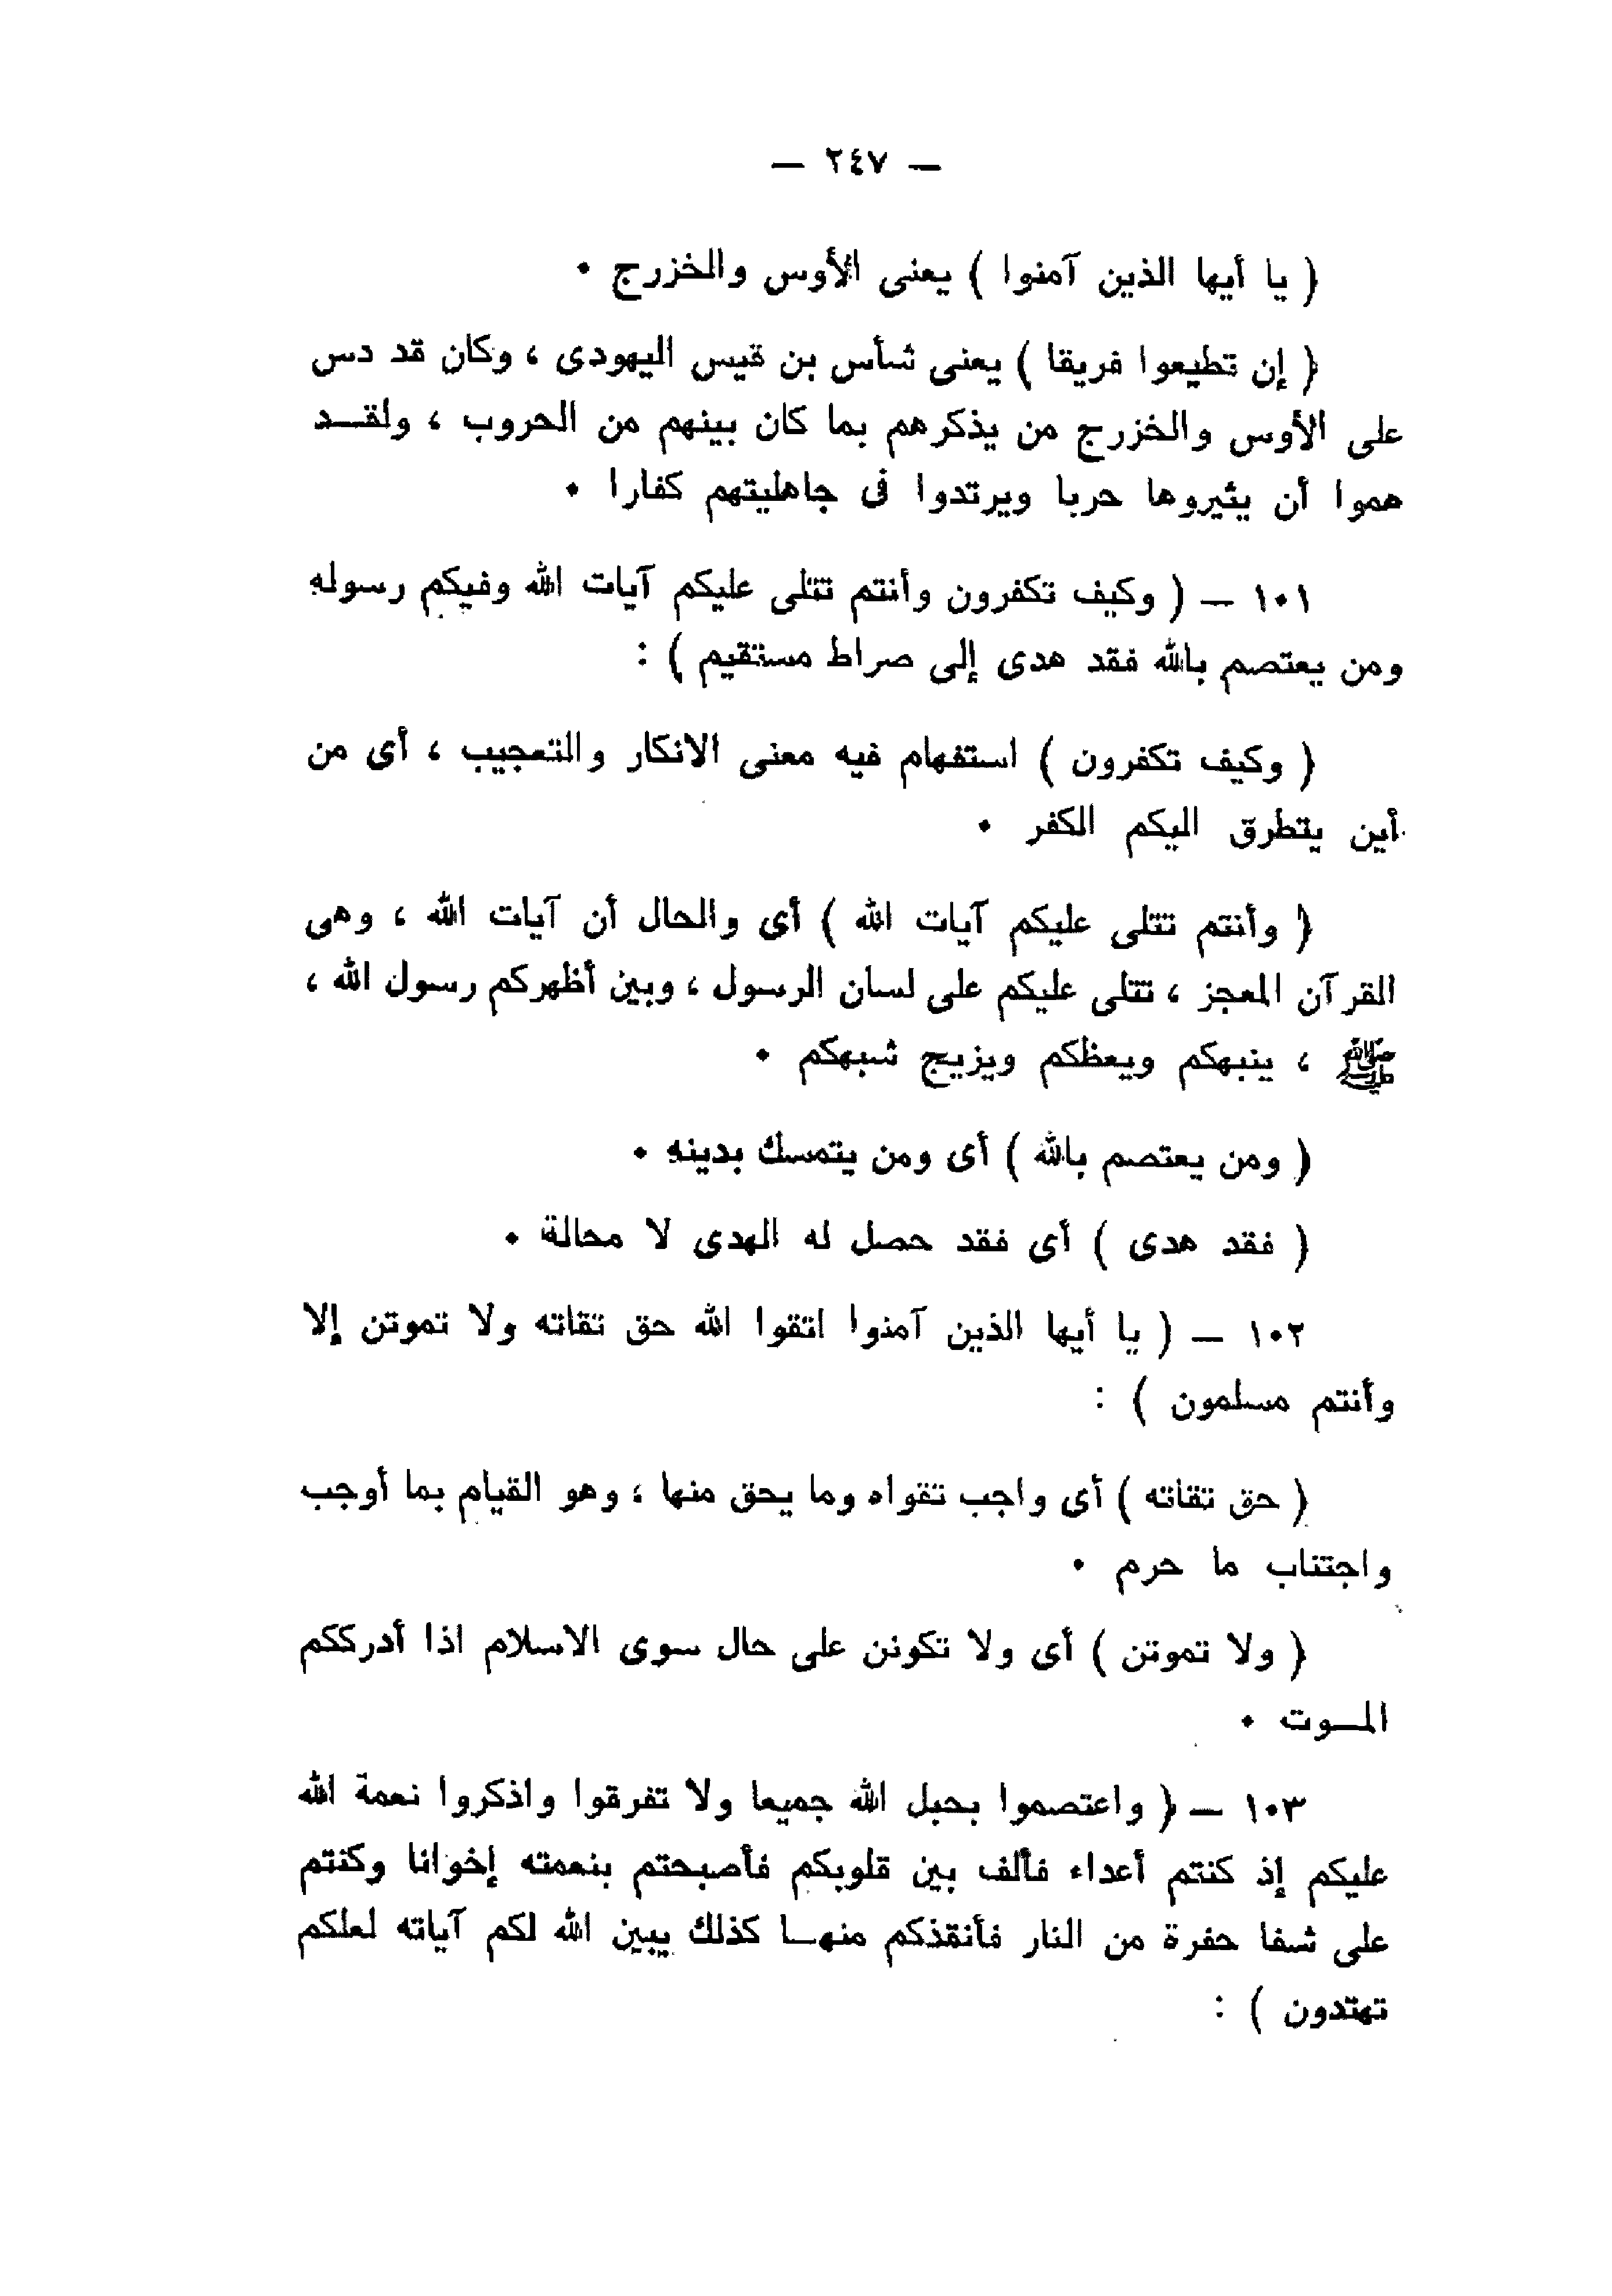 — ٢٤٧ —
( يا أيها الذين آمنوا ) يعنى الأوس والخزرج ٠
( إن تطيعوا فريقا ) يعنى شأس بن قيس اليهودى ، وكان قد دس
على الأوس والخزرج من يذكرهم بما كان بينهم من الحروب ، ولقـــد
هموا أن يثيروها حربا ويرتدوا فى جاهليتهم كفارا ٠
١٠١ — ( وكيف تكفرون وأنتم تتلى عليكم آيات الله وفيكم رسوله
ومن يعتصم بالله فقد هدى إلى صراط مستقيم ) :
( وكيف تكفرون ) استفهام فيه معنى الانكار والتعجيب ، أى من
أين يتطرق اليكم الكفر ٠
( وأنتم تتلى عليكم آيات الله ) أى والحال أن آيات الله ، وهى
القرآن المعجز ، تتلى عليكم على لسان الرسول ، وبين أظهركم رسول الله ،
ﷺ ، ينبهكم ويعظكم ويزيج شبهكم ٠
( ومن يعتصم بالله ) أى ومن يتمسك بدينه ٠
( فقد هدى ) أى فقد حصل له الهدى لا محالة ٠
١٠٢ — ( يا أيها الذين آمنوا اتقوا الله حق تقاته ولا تموتن إلا
وأنتم مسلمون ) :
( حق تقاته ) أى واجب تقواه وما يحق منها ، وهو القيام بما أوجب
واجتناب ما حرم ٠
( ولا تموتن ) أى ولا تكونن على حال سوى الاسلام اذا أدرككم
المــوت ٠
١٠٣ — ( واعتصموا بحبل الله جميعا ولا تفرقوا واذكروا نعمة الله
عليكم إذ كنتم أعداء فألف بين قلوبكم فأصبحتم بنعمته إخوانا وكنتم
على شفا حفرة من النار فأنقذكم منهــا كذلك يبين الله لكم آياته لعلكم
تهتدون ) :